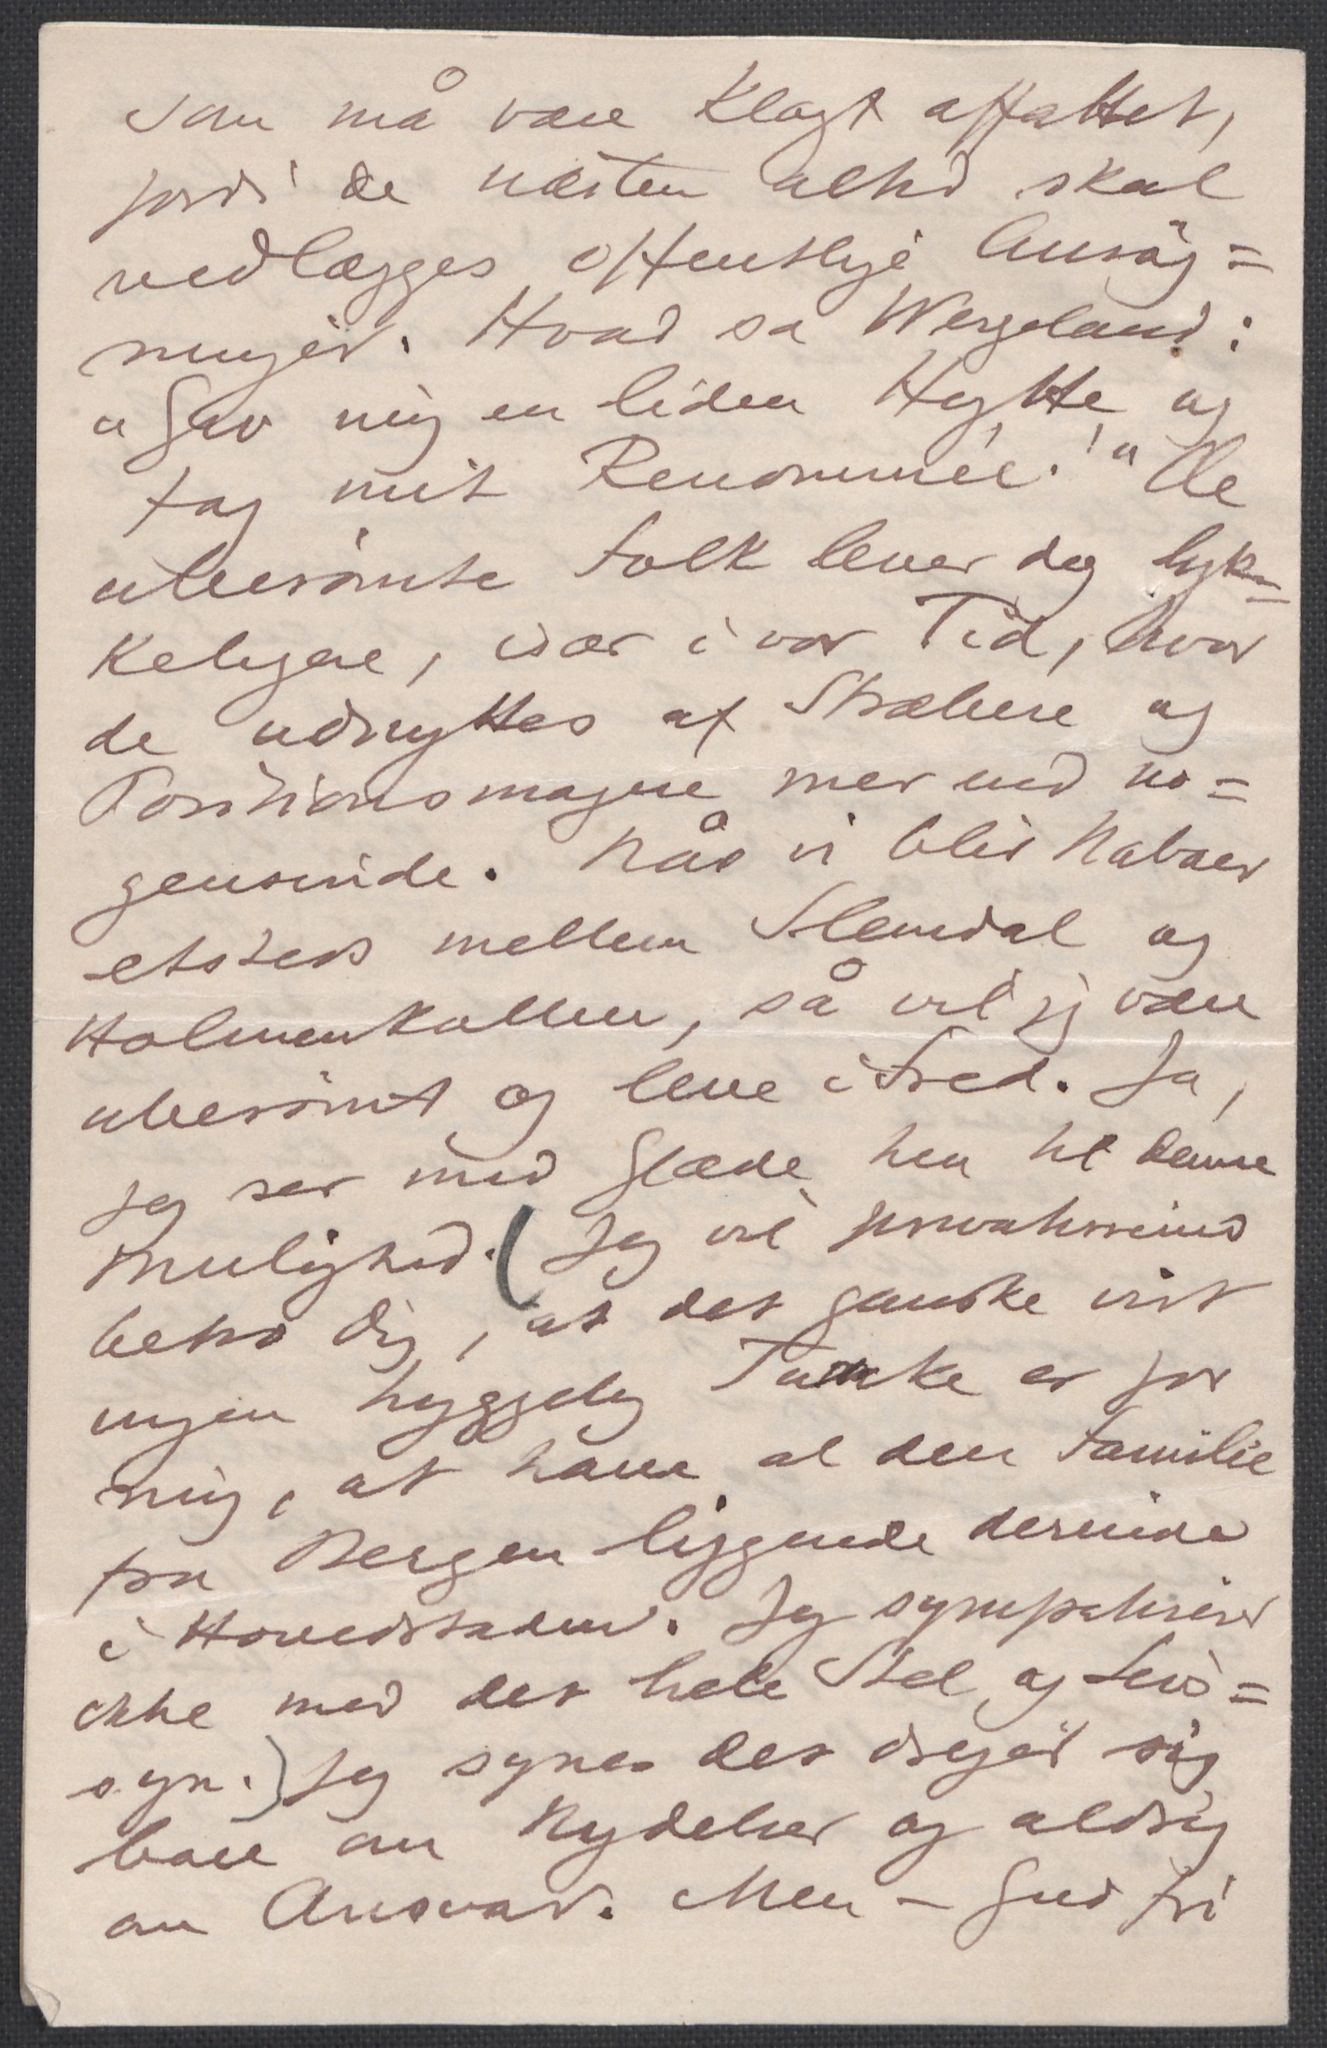 som må være klogt affattet,
fordi de næsten altid skal
vedlægges offentlige Ansøg=
ninger. Hvad sa Wergeland:
„Giv mig en liden Hytte og
tag mit Renommée!" De
uberömte Folk lever dog lyk=
keligere, især i vor Tid, hvor
de udnyttes af Stræbere og
Positionsmagere mer end no=
gensinde. Når vi blir Naboer
etsteds mellem Slemdal og
Holmenkollen, så vil jeg være
uberömt og leve i Fred. Ja,
jeg ser med Glæde hen til denne
Mulighed. (Jeg vil privatissime
betro Dig, at det ganske vist
ingen hyggelig Tanke er for
mig, at have al den Familie
fra Bergen liggende derinde
i Hovedstaden. Jeg sympatiserer
ikke med det hele Stel og Livs=
syn.) Jeg synes det drejer sig
bare om Nydelser og aldrig
om Ansvar. Men – Gud fri